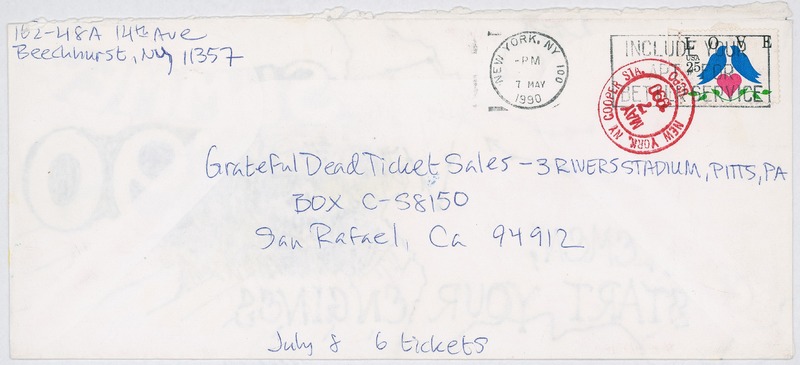 162-48A 14th Ave
Beechhurst, NY 11357
NEW YORK, NY 100
PM
7 MAY
1990
INCLUDE YOUR
APT # FOR
BETTER SERVICE
LOVE
USA
25
NEW YORK, NY COOPER STA.
MAY
7
1990
Grateful Dead Ticket Sales - 3 RIVERS STADIUM, PITTS, PA
BOX C-S8150
San Rafael, Ca 94912
START YOUR ENGINES
July 8 6 tickets